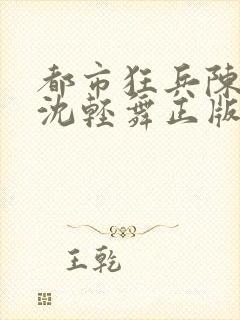 都市狂兵陳
沈輕舞正版
王乾